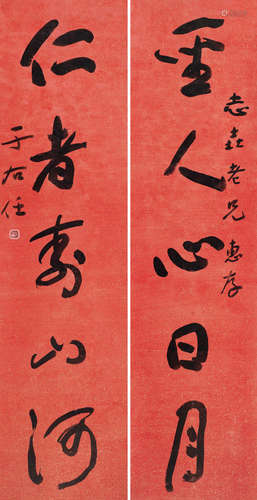 聖人心日月
志老兄惠存
仁者壽山河
于右任